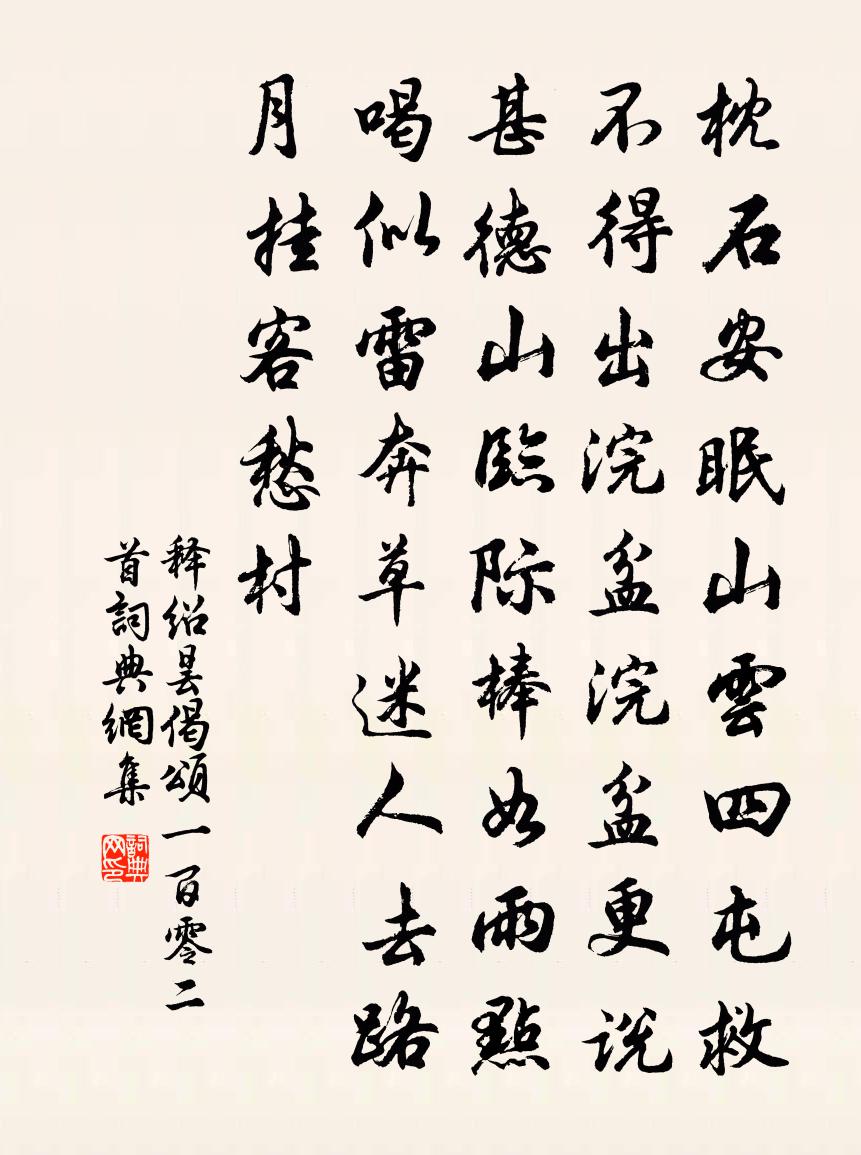 枕石安眠山雲四屯救
不得出浣盆浣盆更说
甚德山臨际棒如雨點
喝似雷奔草迷人去路
月挂客愁村
释绍昙偈頌一百零二
首詞典網集
詞典网印